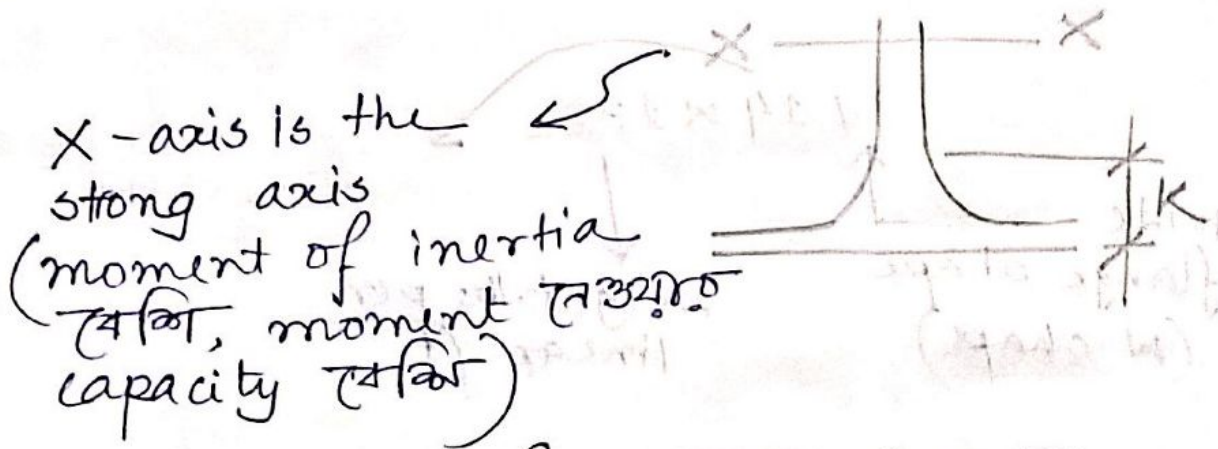 X X
X-axis is the
strong axis
(moment of inertia
বেশি, moment নেওয়ার
capacity বেশি)
K